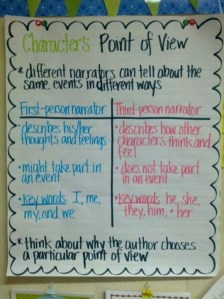 Character's Point of View
* different narrators can tell about the
same events in different ways
First-person narrator
• describes his/her
thoughts and feelings
• might take part in
an event
• Key words I, me,
my, and we
Third-person narrator
• describes how other
characters think and
feel
• does not take part
in an event
• Key words he, she,
they, him, + her
* think about why the author chooses
a particular point of view